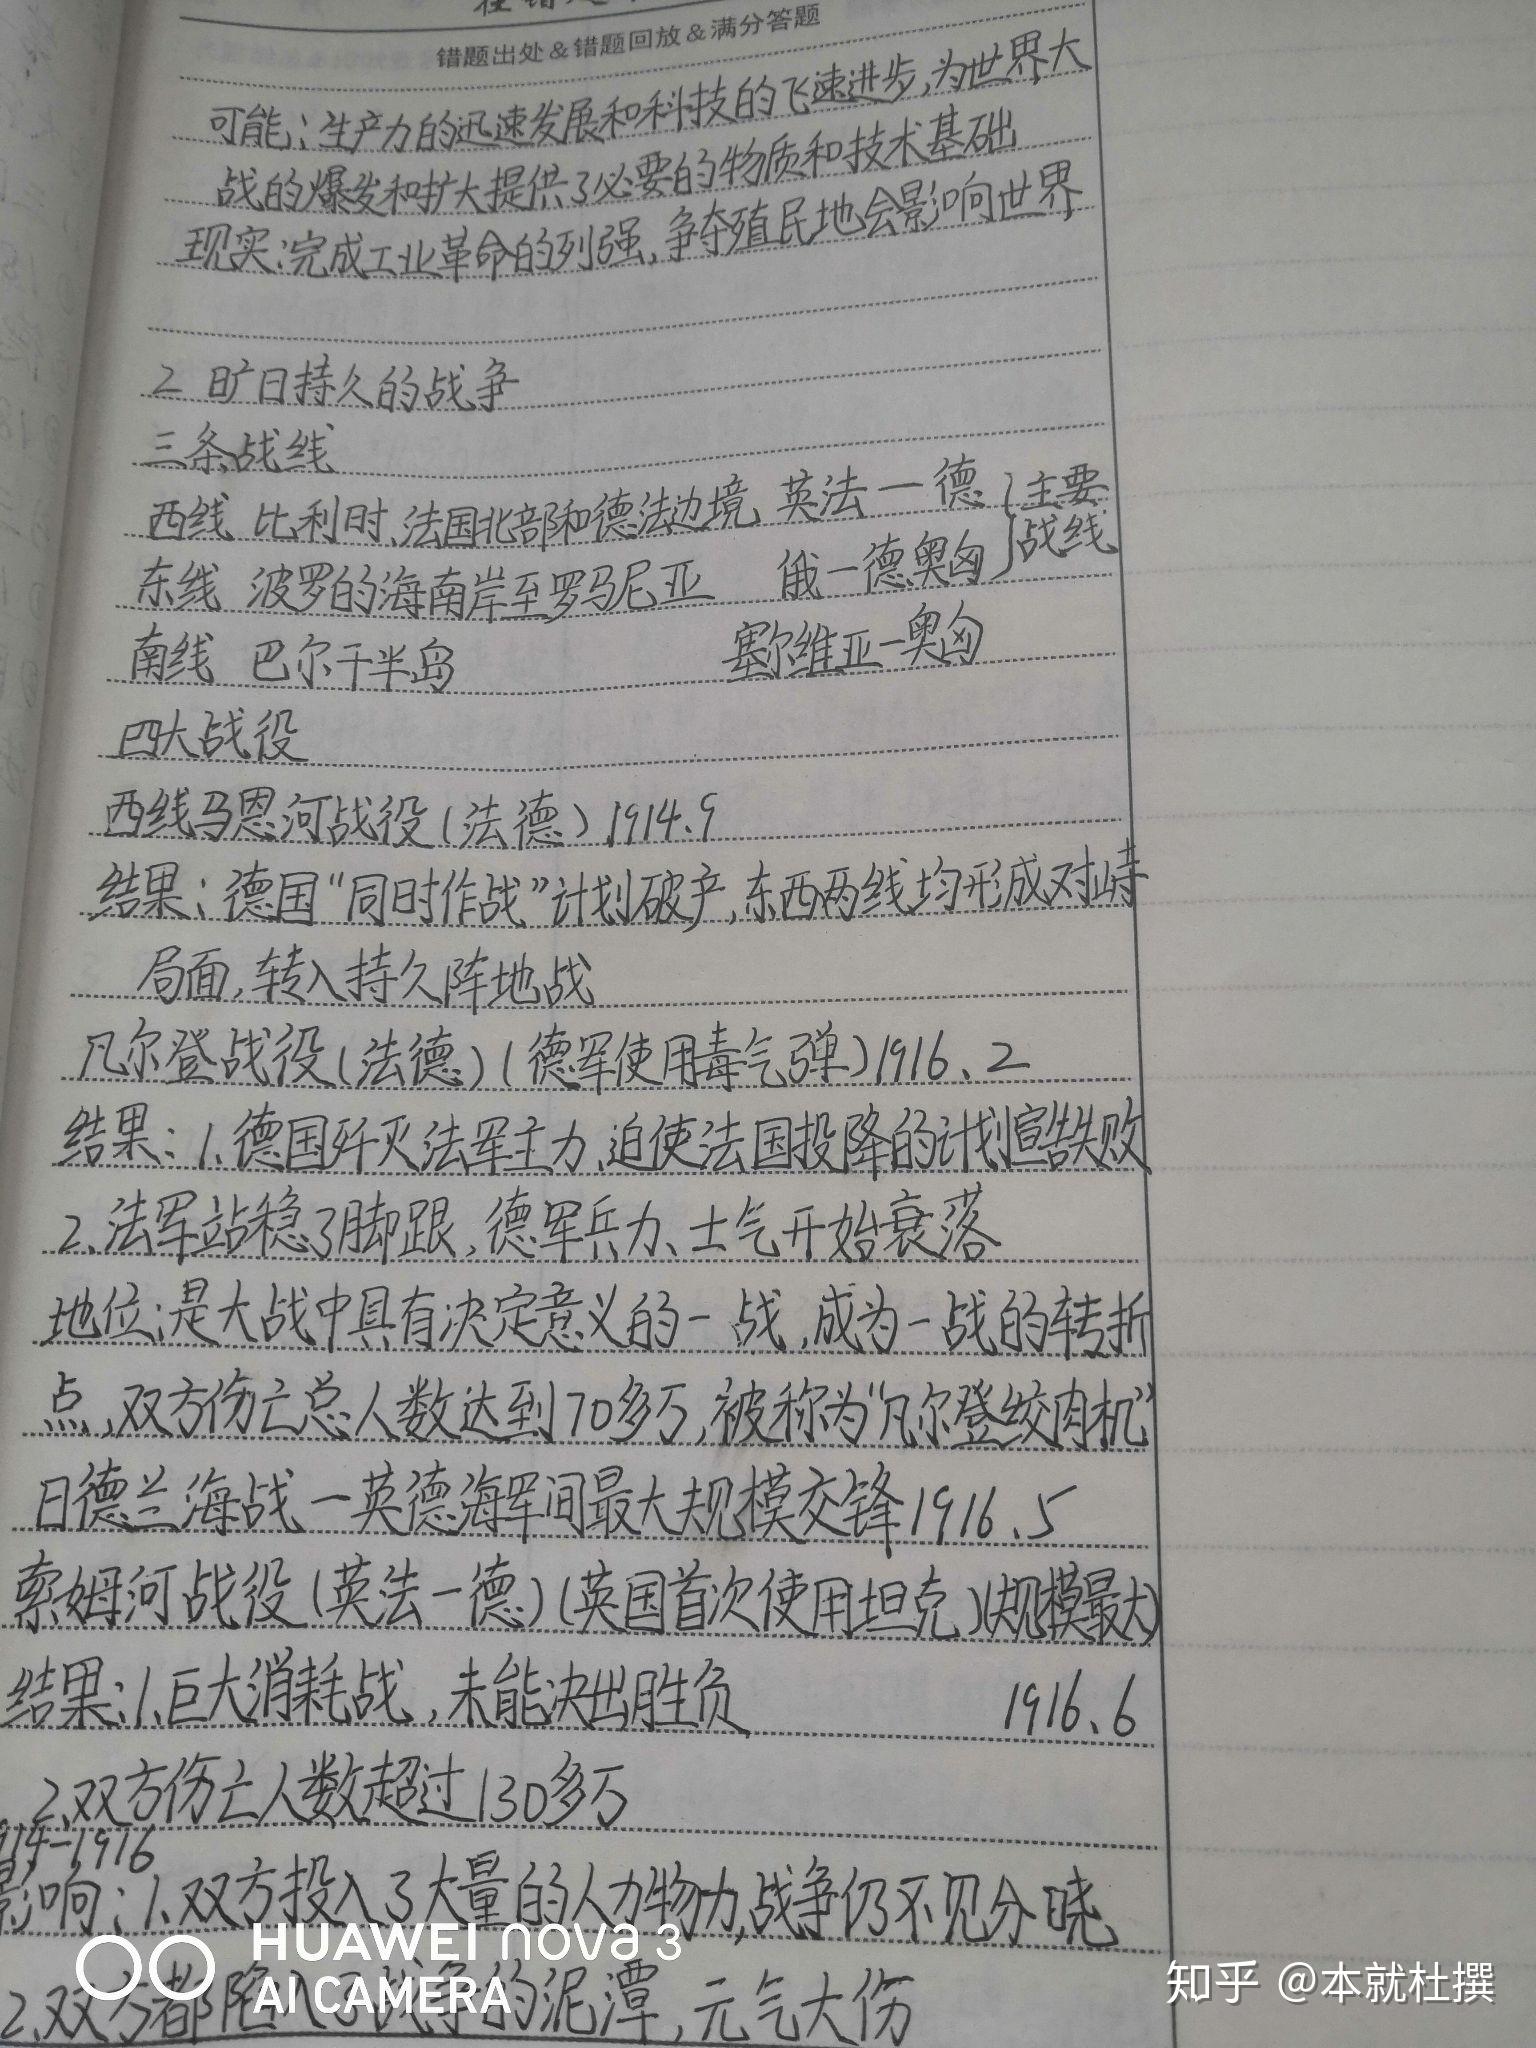 错题出处&错题回放&满分答题
可能：生产力的迅速发展和科技的飞速进步，为世界大
战的爆发和扩大提供了必要的物质和技术基础
现实：完成工业革命的列强，争夺殖民地会影响世界
2 旷日持久的战争
三条战线
西线 比利时、法国北部和德法边境 英法一德 主要
东线 波罗的海南岸至罗马尼亚 俄一德奥匈 战线
南线 巴尔干半岛 塞尔维亚一奥匈
四大战役
西线马恩河战役(法德) 1914、9
结果：德国“同时作战”计划破产，东西两线均形成对峙
局面，转入持久阵地战
凡尔登战役(法德)(德军使用毒气弹)1916、2
结果：1、德国歼灭法军主力、迫使法国投降的计划宣告失败
2、法军站稳了脚跟，德军兵力、士气开始衰落
地位：是大战中具有决定意义的一战，成为一战的转折
点，双方伤亡总人数达到70多万，被称为“凡尔登绞肉机”
日德兰海战一英德海军间最大规模交锋1916、5
索姆河战役(英法一德)(英国首次使用坦克)(规模最大)
结果：1、巨大消耗战，未能决出胜负 1916、6
2、双方伤亡人数超过130多万
914-1916
影响：1、双方投入了大量的人力物力，战争仍不见分晓
2、双方都陷入了战争的泥潭，元气大伤
HUAWEI nova 3
AI CAMERA
知乎 @本就杜撰